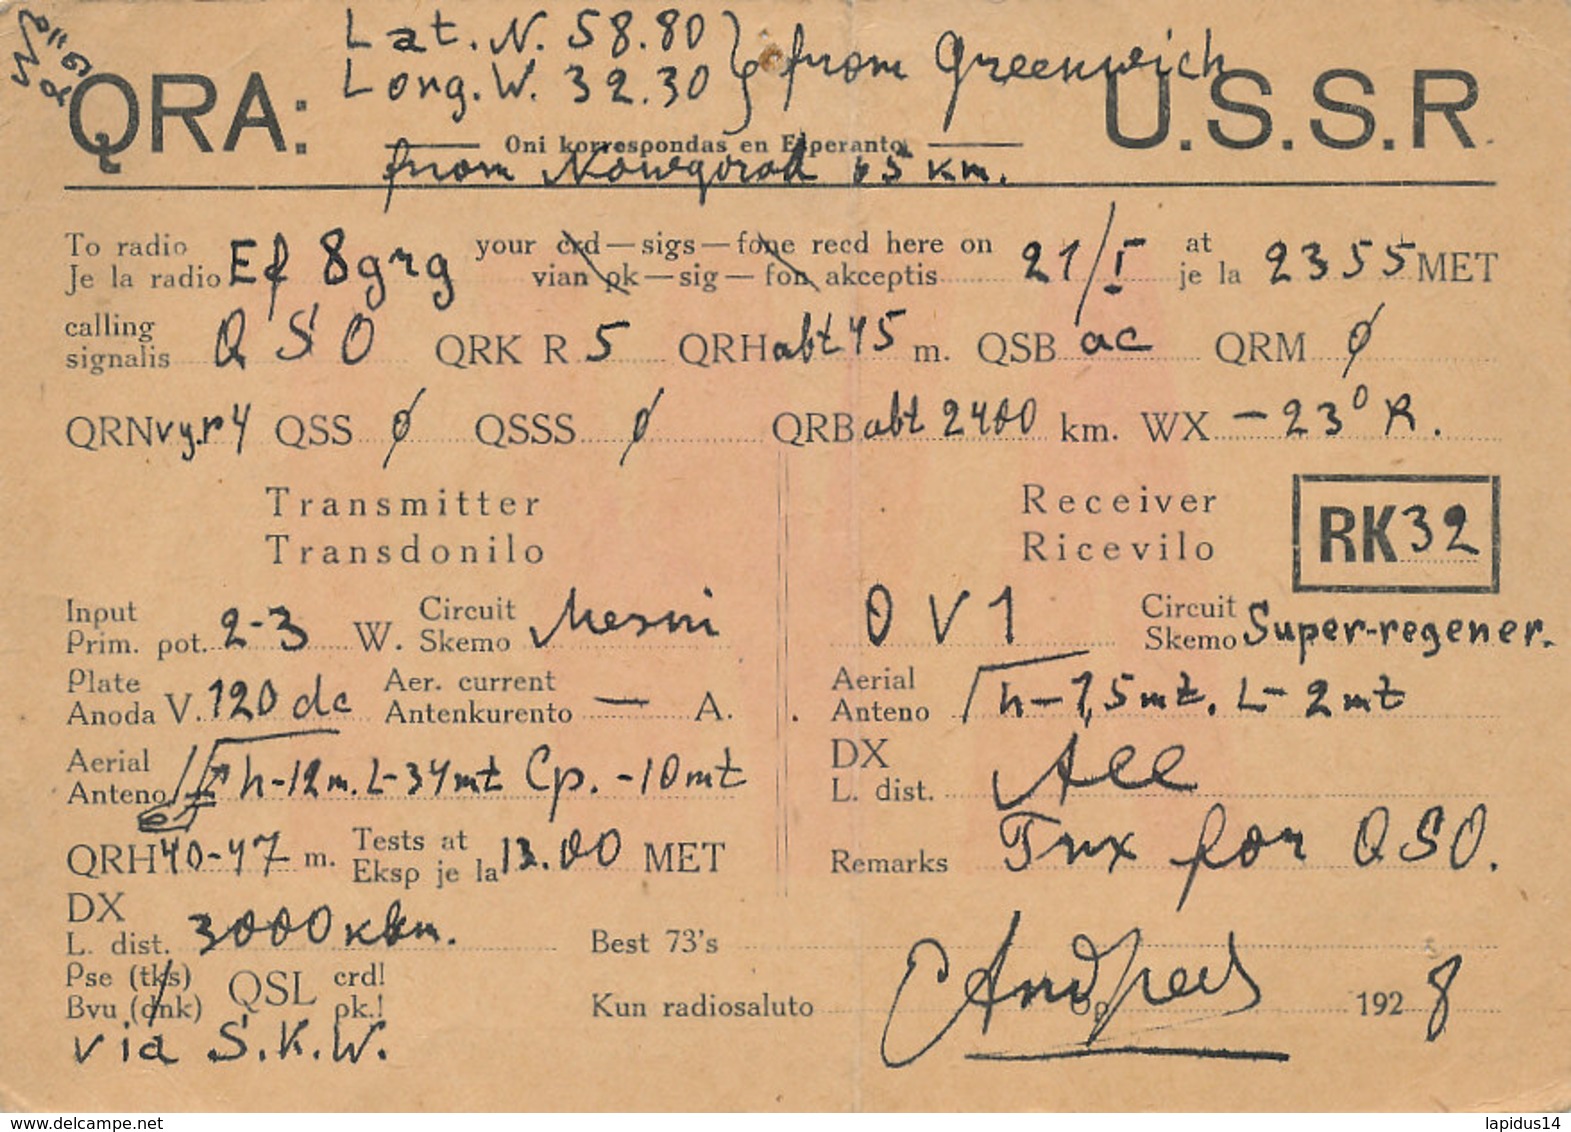 Lat. N. 58.80
Long. W. 32.30 } from Greenwich
QRA: U.S.S.R.
Oni korrespondas en Esperanto
from Nowgorod 65 km.
To radio
Je la radio Ef 8grg your crd — sigs — fone recd here on
vian pk — sig — fon akceptis 21/I at
je la 2355 MET
calling
signalis QSO QRK R 5 QRH abt 45 m. QSB ac QRM 0
QRN vy.r4 QSS 0 QSSS 0 QRB abt 2400 km. WX -23° R.
Transmitter
Transdonilo
Receiver
Ricevilo
RK 32
Input
Prim. pot. 2-3 W. Circuit
Skemo Mesni
0 V 1 Circuit
Skemo Super-regener.
Plate
Anoda V. 120 dc Aer. current
Antenkurento — A.
Aerial
Anteno h-1,5mt. L-2mt
Aerial
Anteno h-12m. L-34mt Cp. -10mt
DX
L. dist. All
QRH 40-47 m. Tests at
Eksp je la 13.00 MET
Remarks Tnx for QSO.
DX
L. dist. 3000 km.
Best 73's
Kun radiosaluto Op 1928
Pse (tks)
Bvu (dnk) QSL crd!
pk.!
via S.K.W.
lapidus14
www.delcampe.net